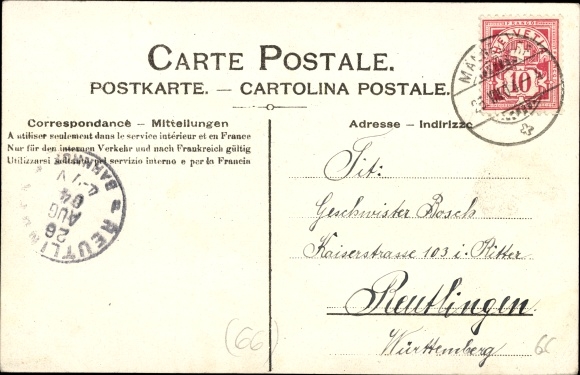 CARTE POSTALE.
POSTKARTE. — CARTOLINA POSTALE.
Correspondance — Mitteilungen
A utiliser seulement dans le service intérieur et en France
Nur für den internen Verkehr und nach Frankreich gültig
Utilizzarsi soltanto nel servizio interno e per la Francia
Adresse — Indirizzo
HELVETIA
FRANCO
10
REUTLINGEN
BAHNHOF
4-7 V
04
AUG
26
Tit:
Geschwister Bosch
Kaiserstrasse 103 i. Ritter
Reutlingen
Württemberg
(66)
66